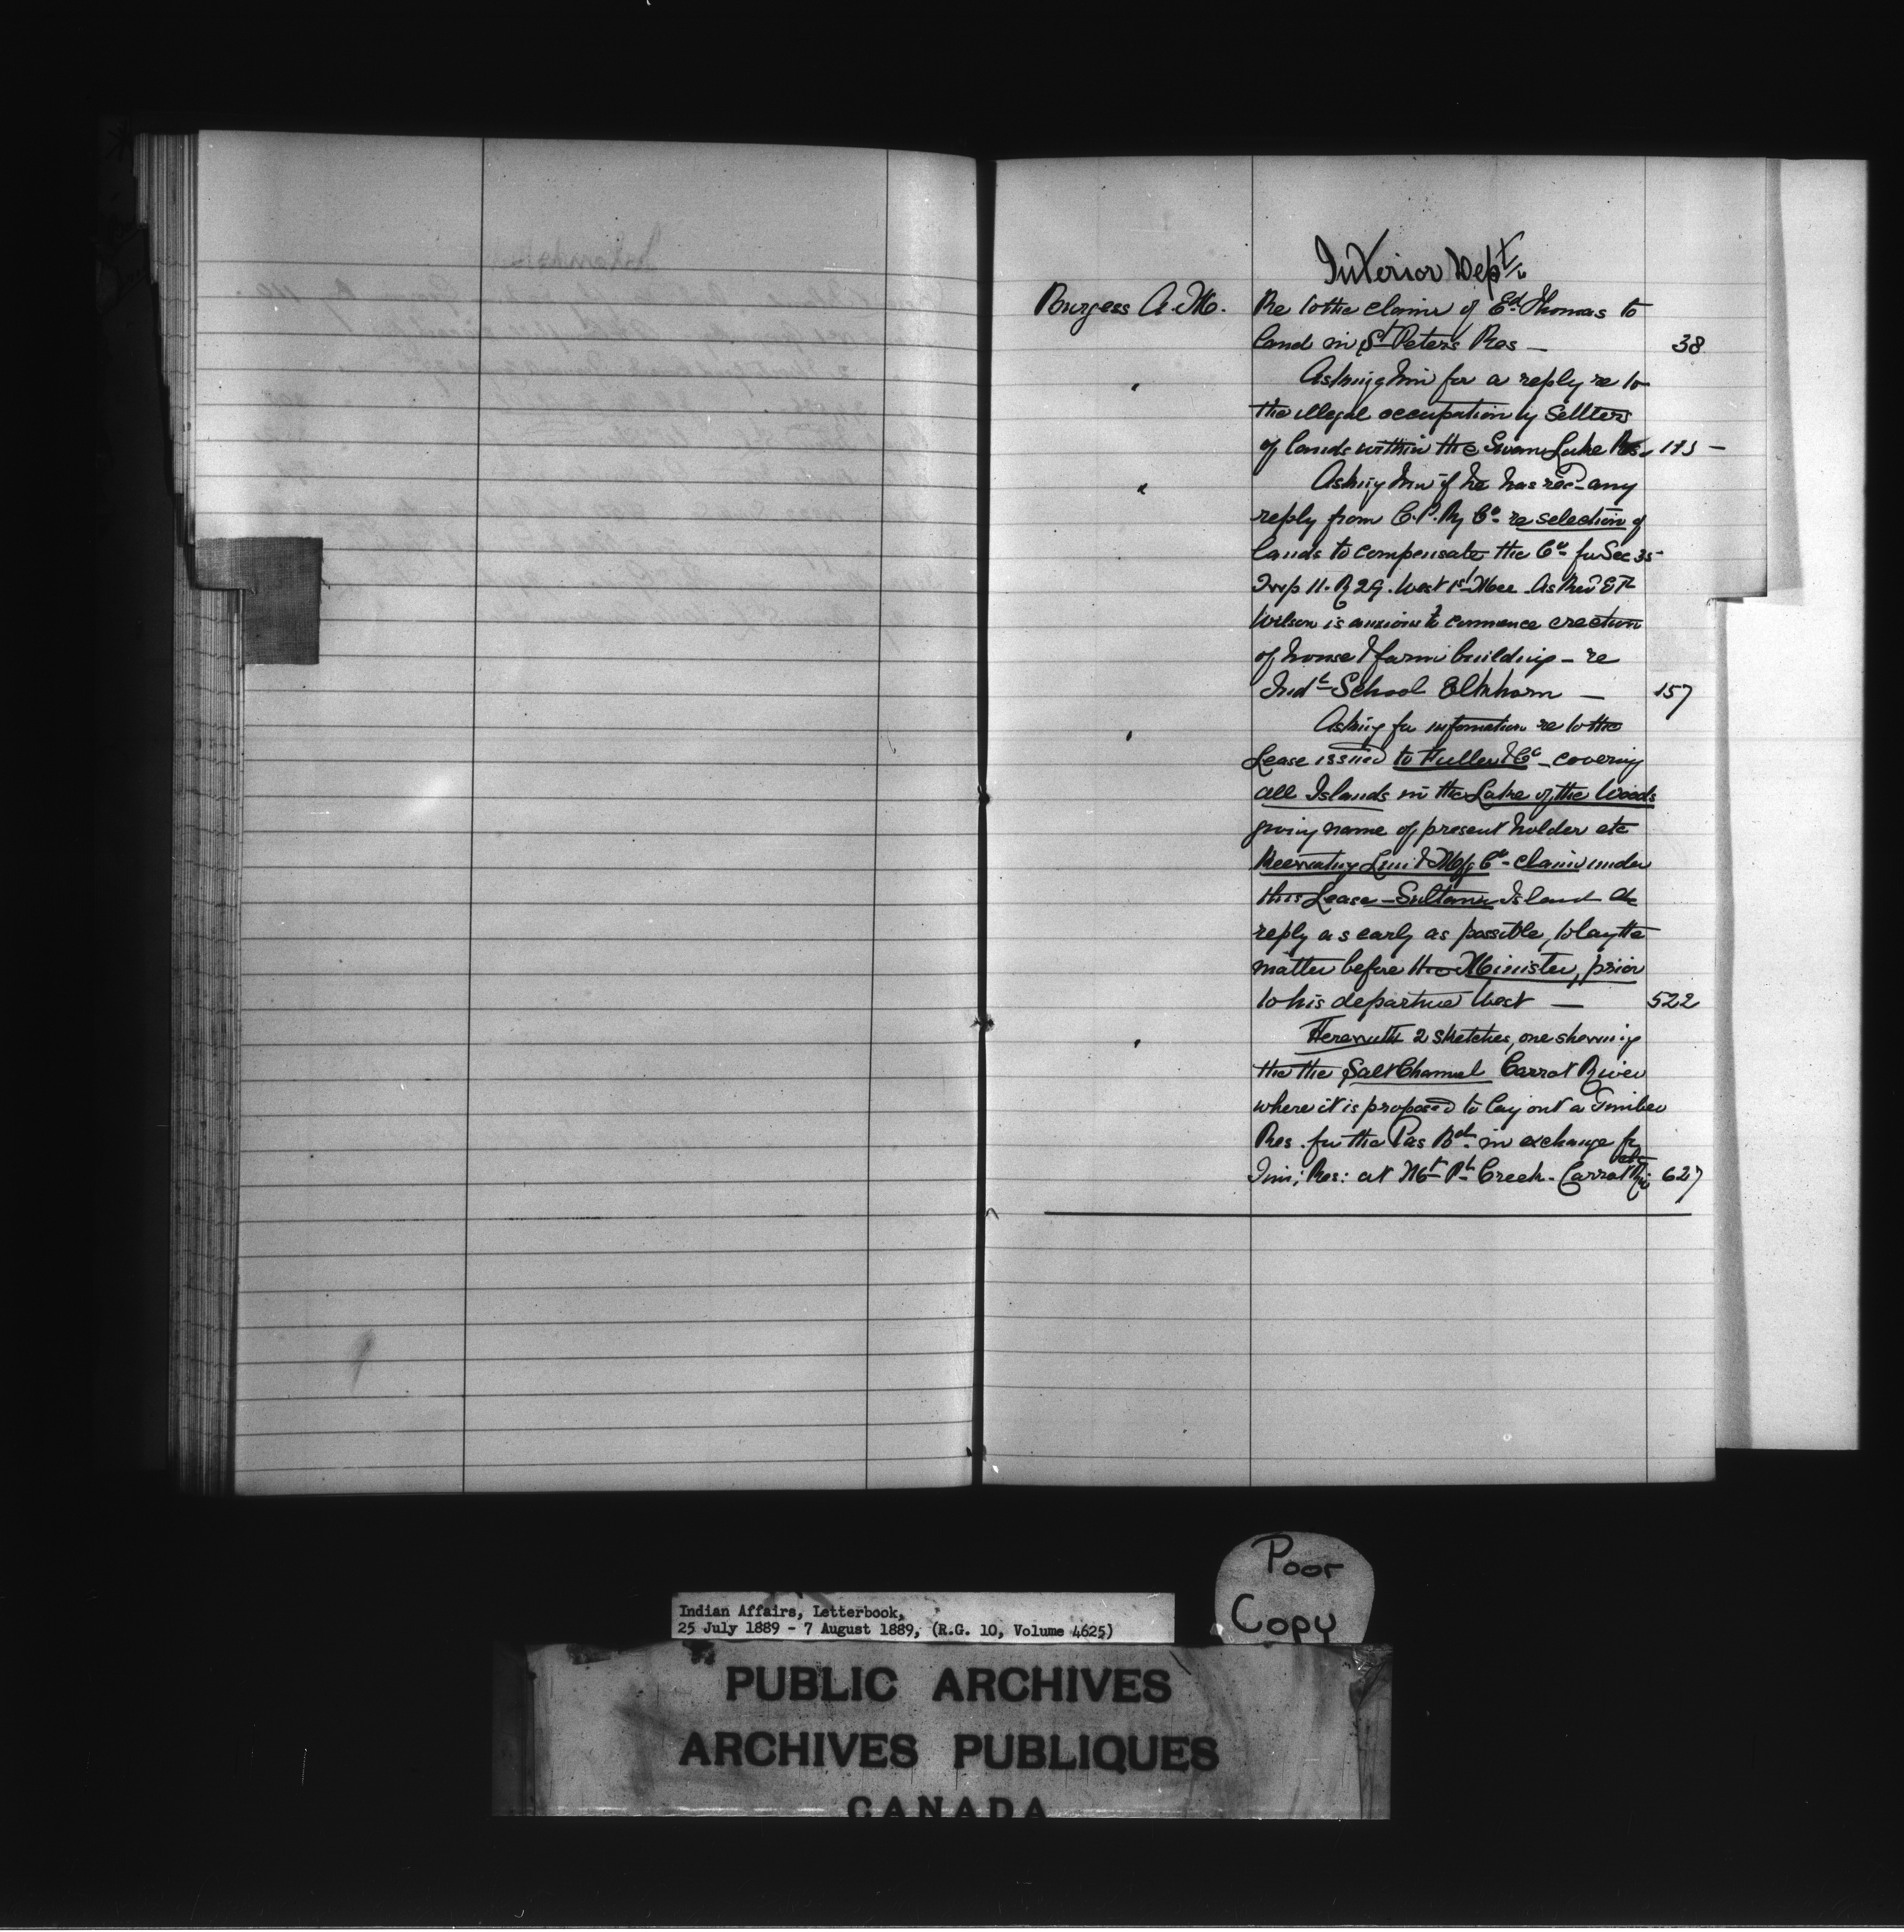 Interior Dept.
Burgess A. M. Re to the claim of Ed. Thomas to
land in St Peters Res — 38
" Asking him for a reply re to
the illegal occupation by Settlers
of lands within the Swan Lake Res. 113 —
" Asking him if he has recd any
reply from C.P. Ry Co. re selection of
lands to compensate the Co. for Sec 35
Twp 11. R 29. West 1st Mer. As Revd E F
Wilson is anxious to commence erection
of house & farm building — re
Indl School Elkhorn — 157
" Asking for information re to the
Lease issued to Fuller & Co. covering
all Islands in the Lake of the Woods
giving name of present holder etc
Keewatin Lum & Mfg Co. claim under
this Lease — Sultana Island
reply as early as possible, to lay the
matter before the Minister, prior
to his departure West — 522
" Herewith 2 sketches, one showing
the the Salt Channel Carrot River
where it is proposed to lay out a Timber
Res. for the Pas Bd. in exchange for
Tim; Res: at Creek. Carrot Riv 627
Indian Affairs, Letterbook,
25 July 1889 - 7 August 1889, (R.G. 10, Volume 4625)
Poor
Copy
PUBLIC ARCHIVES
ARCHIVES PUBLIQUES
CANADA